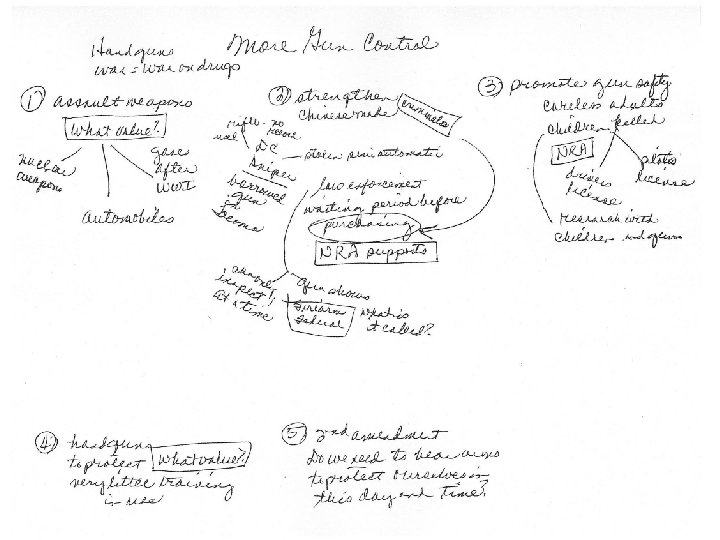 More Gun Control
Handguns
war = war on drugs
① assault weapons
What value?
nuclear
weapons
gases
after
WWI
automobiles
② strengthen
Chinese made
criminals
rifle - no
DC
Sniper
borrowed
gun
stolen semi automatic
law enforcement
waiting period before
purchasing
NRA supports
at a time
gun shows
firearm
federal
what is
it called?
③ promote gun safety
careless adults
children killed
NRA
drivers
license
pilots
license
research with
children and guns
④ handguns
to protect
What value?
very little training
in use
⑤ 2nd amendment
Do we need to bear arms
to protect ourselves in
this day and time?